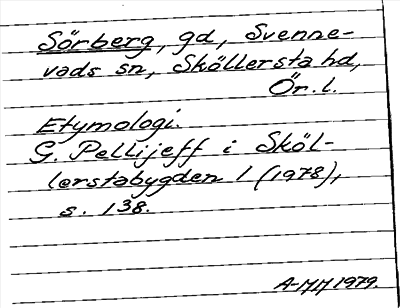 Sörberg, gd, Svenne-
vads sn, Sköllersta hd,
Ör. l.
Etymologi.
G. Pellijeff i Sköl-
lerstabygden 1 (1978),
s. 138.
A-MH 1979.